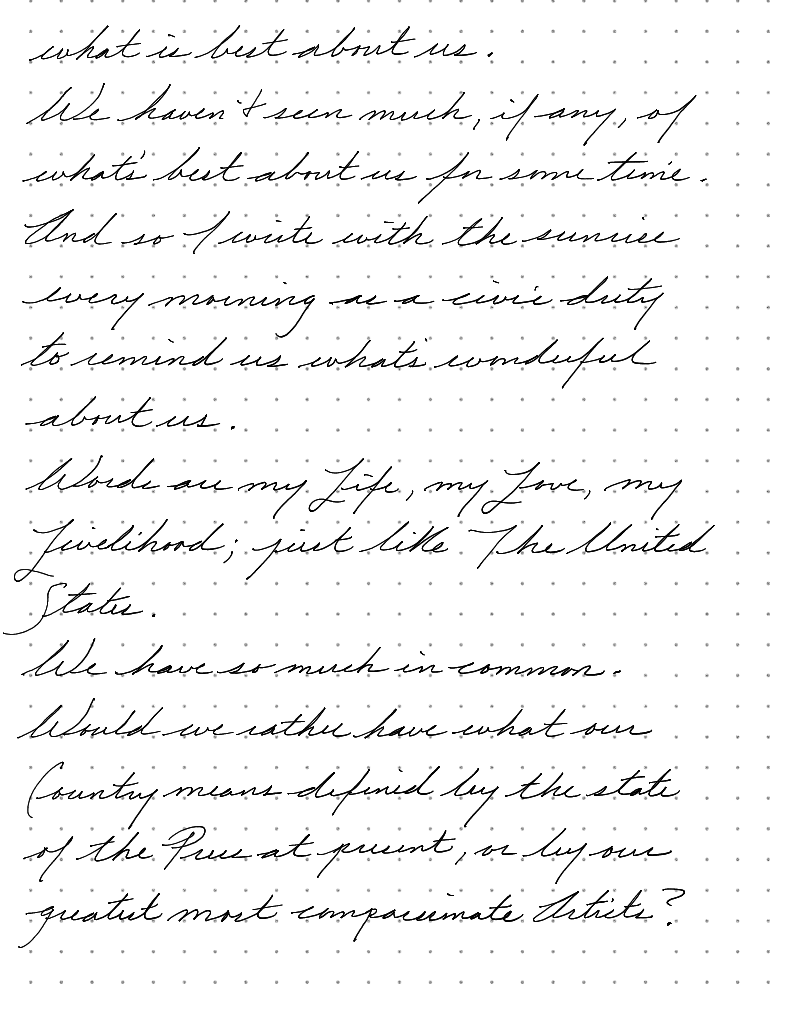 what is best about us.
We haven't seen much, if any, of
what's best about us for some time.
And so I write with the sunrise
every morning as a civic duty
to remind us what's wonderful
about us.
Words are my Life, my Love, my
Livelihood; just like The United
States.
We have so much in common.
Would we rather have what our
Country means defined by the state
of the Press at present, or by our
greatest most compassionate Artists?